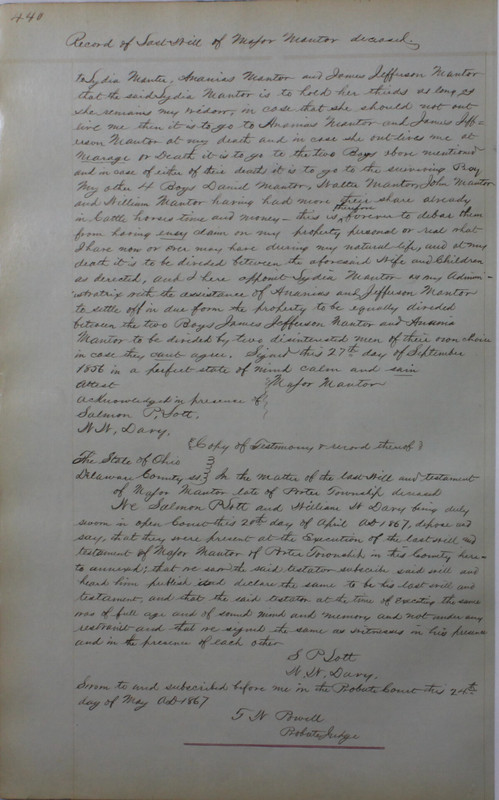 440
Record of Last Will of Major Mantor deceased.
to Lydia Mantor, Ananias Mantor and James Jefferson Mantor
that the said Lydia Mantor is to hold her thirds as long as
she remains my widow, in case that she should not out
live me then it is to go to Ananias Mantor and James Jeff-
erson Mantor at my death and in case she out lives me at
Marage or Death it is to go to the two Boys above mentiond
and in case of either of their death it is to go to the surviving Boy
My other 4 Boys Daniel Mantor, Walter Mantor, John Mantor
and William Mantor having had more their share already
in cattle horses time and money - this is therefore forever to debar them
from having eney claim on my property personal or real what
I have now or ever may have during my natural life, and at my
death it is to be divided between the aforesaid Wife and Children
as derected, and I here appoint Lydia Mantor as my Admin-
istratrix with the assistance of Ananias and Jefferson Mantor
to settle off in due form the property to be equally divided
between the two Boys James Jefferson Mantor and Anania
Mantor to be divided by two disinterested men of their own choice
in case they cant agree. Signed this 27th day of September
1856 in a perfect state of mind calm and sain
Attest Major Mantor
acknowledged in presence of
Salmon P. Lott.
W. W. Davy.
(Copy of Testimony & record thereof)
The State of Ohio
Delaware County ss. In the matter of the last Will and testament
of Major Mantor late of Porter Township deceased
We Salmon P Lott and William W Davy being duly
sworn in open Court this 20th day of April AD 1867, depose and
say, that they were present at the Execution of the last will and
testament of Major Mantor of Porter Township in this County here-
to annexed; that we saw the said testator subscribe said will and
heard him publish and declare the same to be his last will and
testament, and that the said testator at the time of Executing the same
was of full age and of sound mind and memory and not under any
restraint and that we signed the same as witnesses in his presence
and in the presence of each other
S P Lott
W. W. Davy.
Sworn to and subscribed before me in the Probate Court this 24th
day of May AD 1867
T W Powell
Probate Judge